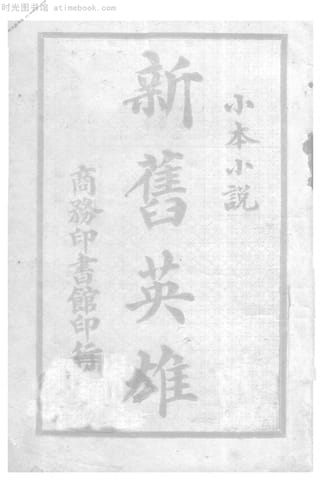 时光图书馆 atimebook.com
小本小說
新舊英雄
商務印書館印行